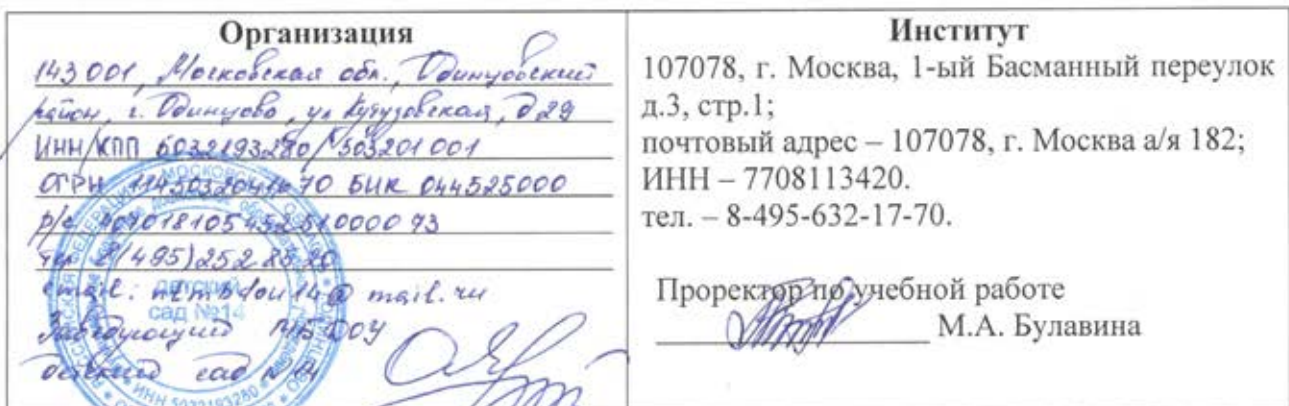 Организация
143001, Московская обл., Одинцовский
район, г. Одинцово, ул Кутузовская, д 29
ИНН/КПП 5032193280/503201001
ОГРН БИК 044525000
р/с
тел 8(495)252
email: @mail.ru
Заведующий МБДОУ
детский сад №14
детский
сад №14
ИНН 5032193280
Институт
107078, г. Москва, 1-ый Басманный переулок
д.3, стр.1;
почтовый адрес – 107078, г. Москва а/я 182;
ИНН – 7708113420.
тел. – 8-495-632-17-70.
Проректор по учебной работе
М.А. Булавина